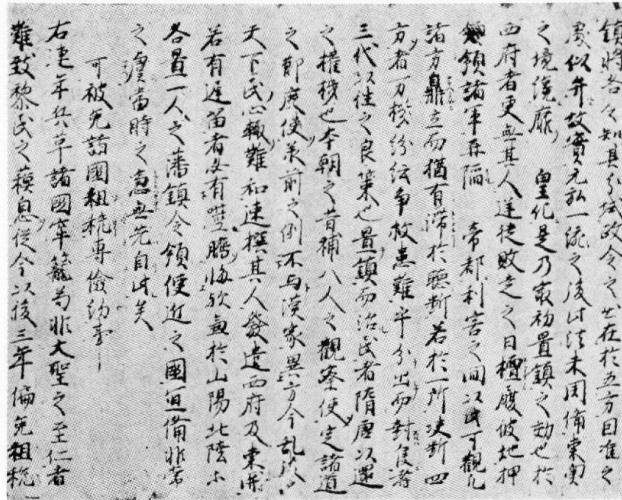 鎮将各々知其分域政令之出在於五方因准之
處似弁故實元弘一統之後此法未周備東奥
之境纔靡　皇化是乃最初置鎮之効也於
西府者更無其人逆徒敗走之日擅履彼地押
領諸軍再陥　帝都利害之間以此可観凡
諸方鼎立而猶有滞於聴断若於一所决断四
方者万機紛紜争救患難乎分出而封侯者
三代以往之良策也置鎮而治民者隋唐以還
之権機也本朝之昔補八人之觀察使定諸道
之節度使承前之例不与漢家異方今乱後之
天下民心輙難和速撰其人發遣西府及東関
若有遅留者必有噬臍悔歟兼於山陽北陸等
各置一人之藩鎮令領便近之國宜備非常
之虞當時之急無先自此矣
可被免諸國租税專倹約事
右連年兵革諸國窄籠苟非大聖之至仁者
難致黎民之蘇息従今以後三年偏免租税